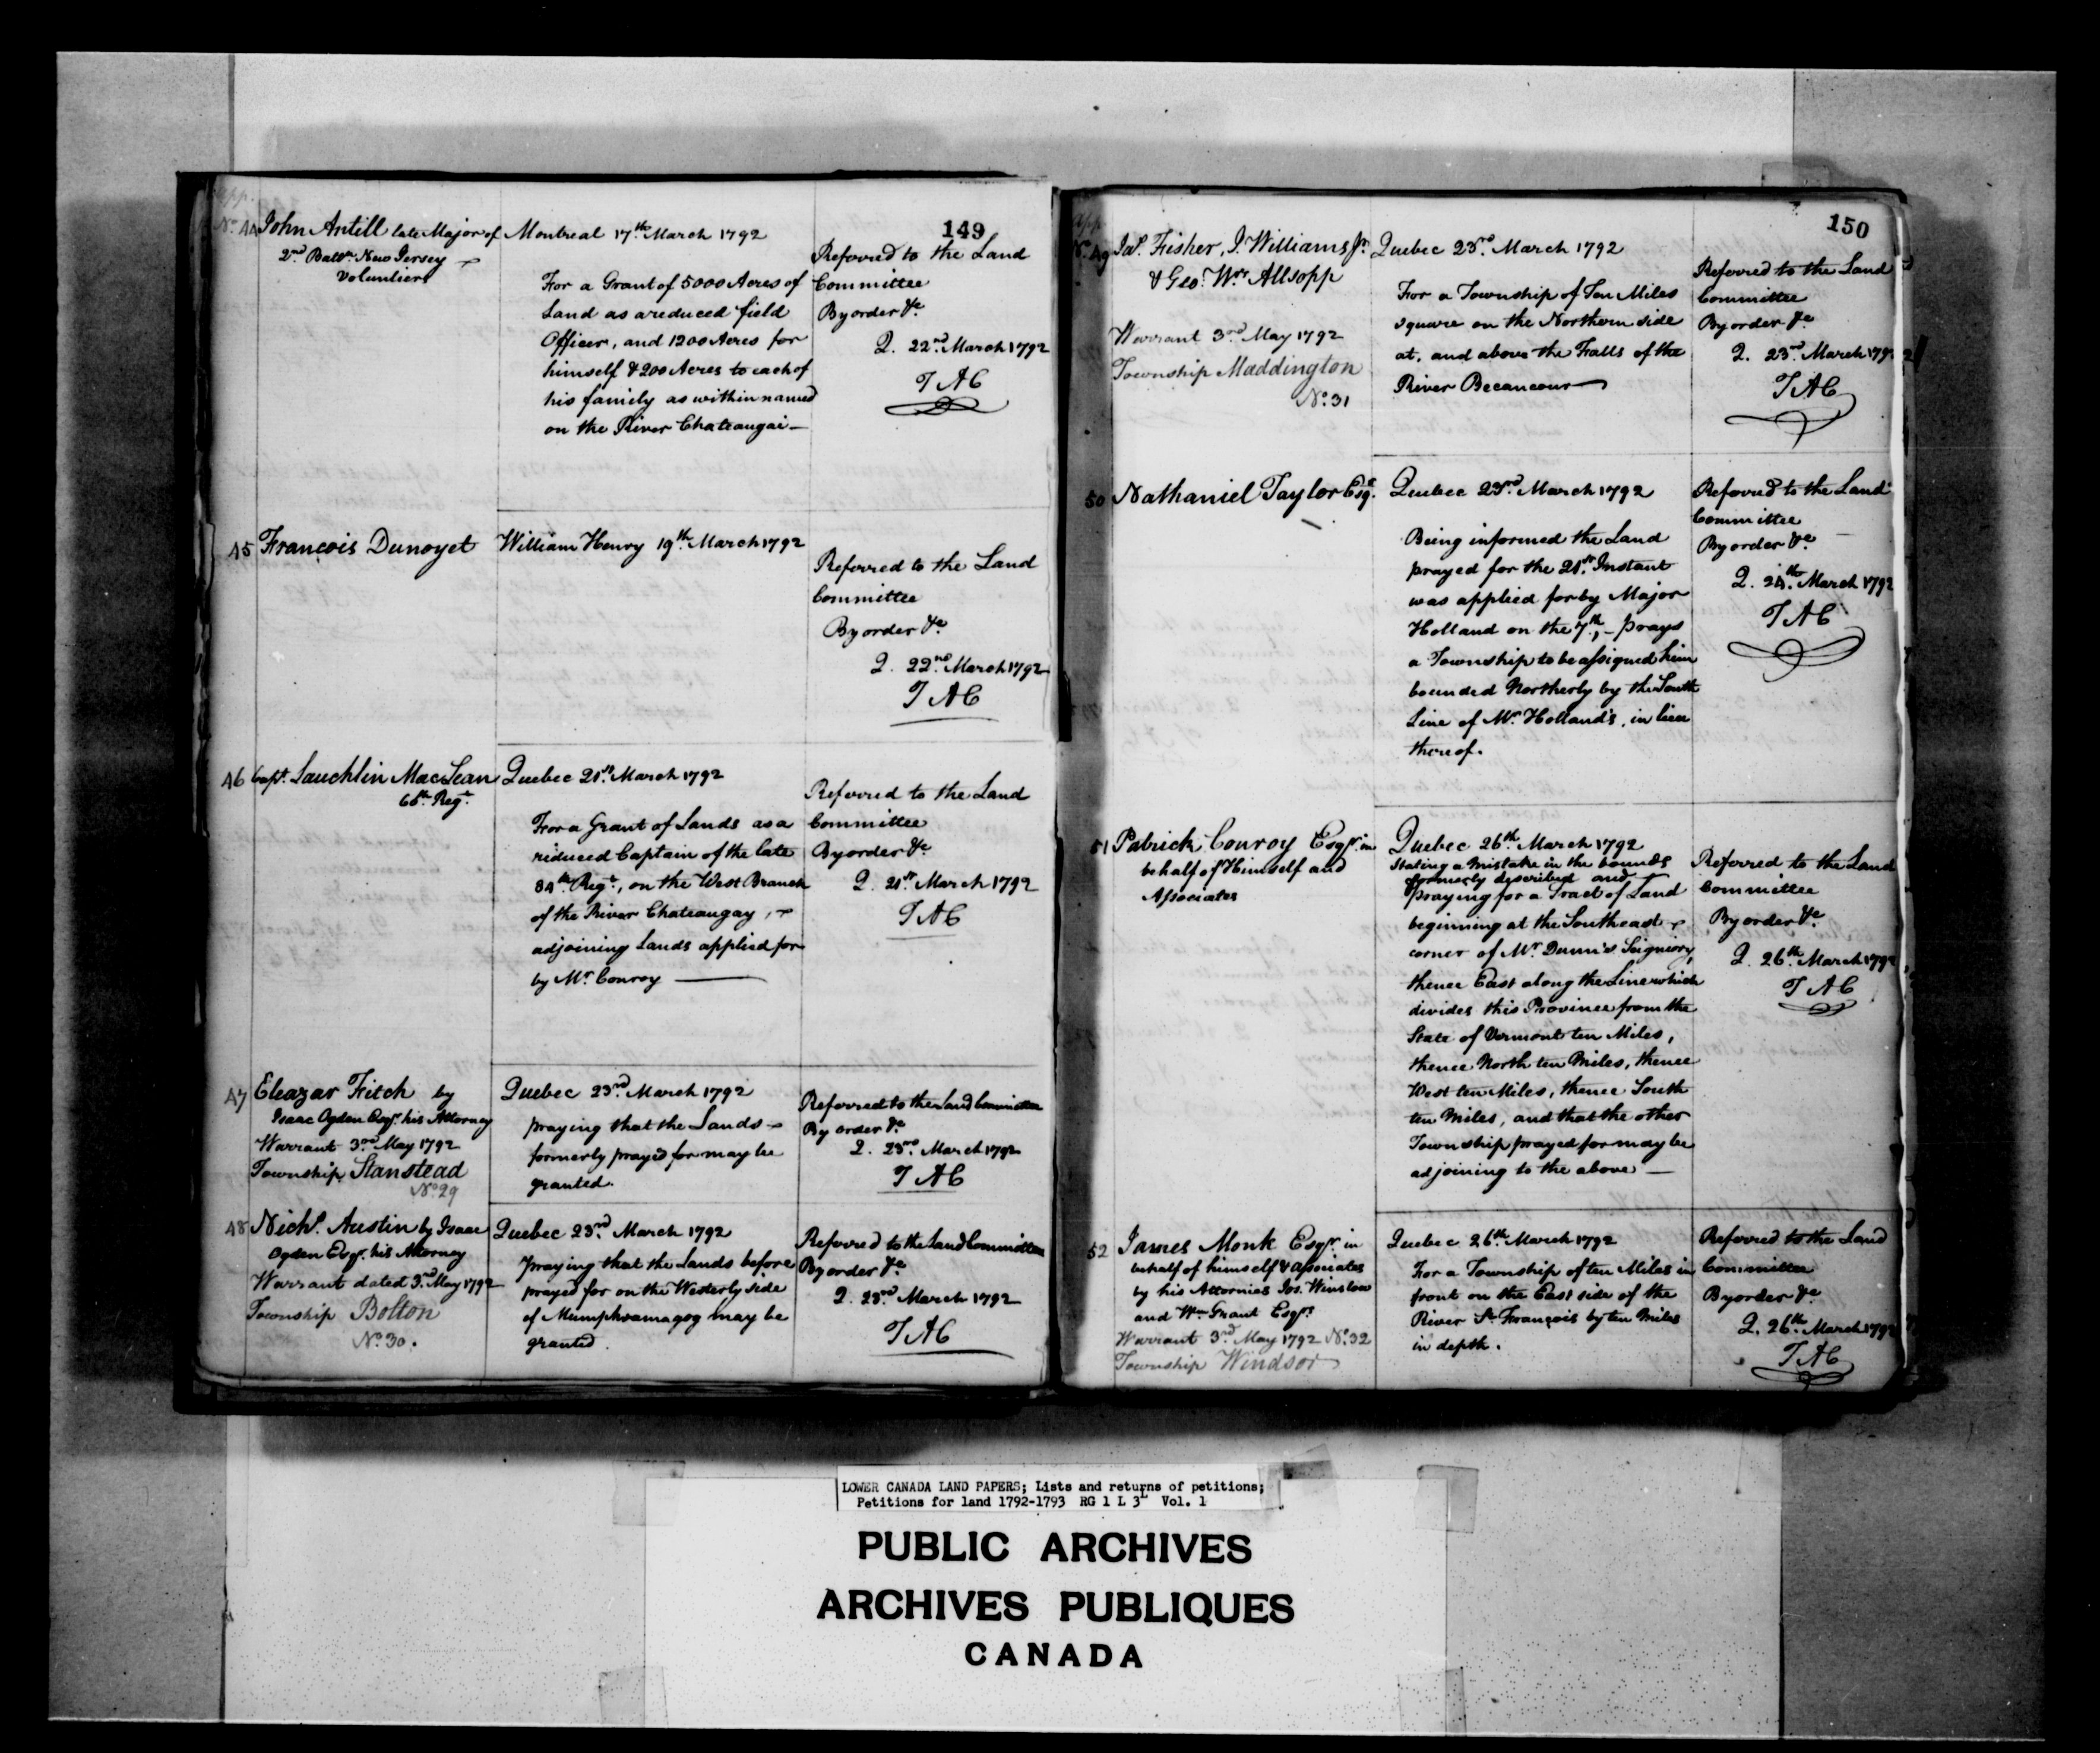 App.
149
No. 44 John Antill late Major of
2nd Battn. New Jersey
Volunteers
Montreal 17th March 1792
For a Grant of 5000 Acres of
Land as a reduced field
Officer, and 1200 Acres for
himself & 200 Acres to each of
his family as within named
on the River Chateaugai—
Referred to the Land
Committee
By order &c.
Q. 22nd March 1792
TAC
45 François Dunoyet
William Henry 19th March 1792
Referred to the Land
Committee
By order &c.
Q. 22nd March 1792
TAC
46 Capt. Lauchlin MacLean
60th Regt.
Quebec 21st March 1792
For a Grant of Lands as a
reduced Captain of the late
84th Regt., on the West Branch
of the River Chateaugay,
adjoining Lands applied for
by Mr. Conroy —
Referred to the Land
Committee
By order &c.
Q. 21st March 1792
TAC
47 Eleazar Fitch by
Isaac Ogden Esqr. his Attorney
Warrant 3rd May 1792
Township Stanstead
No. 29
Quebec 23rd March 1792
praying that the Lands
formerly prayed for may be
granted.
Referred to the Land Committee
By order &c.
Q. 23rd March 1792
TAC
48 Nichs. Austin by Isaac
Ogden Esqr. his Attorney
Warrant dated 3rd May 1792
Township Bolton
No. 30.
Quebec 23rd March 1792
praying that the Lands before
prayed for on the Westerly side
of Memphramagog may be
granted.
Referred to the Land Committee
By order &c.
Q. 23rd March 1792
TAC
App.
150
No. 49 Jas. Fisher, J. Williams Jr.
& Geo. Wm. Allsopp
Warrant 3rd May 1792
Township Maddington
No. 31
Quebec 23rd March 1792
For a Township of Ten Miles
square on the Northern side
at, and above the Falls of the
River Becancour—
Referred to the Land
Committee
By order &c.
Q. 23rd March 1792
TAC
50 Nathaniel Taylor Esqr.
Quebec 23rd March 1792
Being informed the Land
prayed for the 21st Instant
was applied for by Major
Holland on the 7th, – prays
a Township to be assigned him
bounded Northerly by the South
Line of Mr. Holland's, in lieu
thereof.
Referred to the Land
Committee
By order &c.
Q. 24th March 1792
TAC
51 Patrick Conroy Esqr. in
behalf of Himself and
Associates
Quebec 26th March 1792
Stating a mistake in the bounds
formerly described and
praying for a Tract of Land
beginning at the Southeast
corner of Mr. Dunn's Seigniory,
thence East along the Line which
divides this Province from the
State of Vermont ten Miles,
thence North ten Miles, thence
West ten Miles, thence South
ten Miles, and that the other
Township prayed for may be
adjoining to the above —
Referred to the Land
Committee
By order &c.
Q. 26th March 1792
TAC
52 James Monk Esqr. in
behalf of himself & associates
by his Attornies Jos. Winslow
and Wm. Grant Esqrs.
Warrant 3rd May 1792 No. 32
Township Windsor
Quebec 26th March 1792
For a Township of ten Miles in
front on the East side of the
River St. François by ten Miles
in depth.
Referred to the Land
Committee
By order &c.
Q. 26th March 1792
TAC
LOWER CANADA LAND PAPERS; Lists and returns of petitions;
Petitions for land 1792-1793 RG 1 L 3L Vol. 1
PUBLIC ARCHIVES
ARCHIVES PUBLIQUES
CANADA